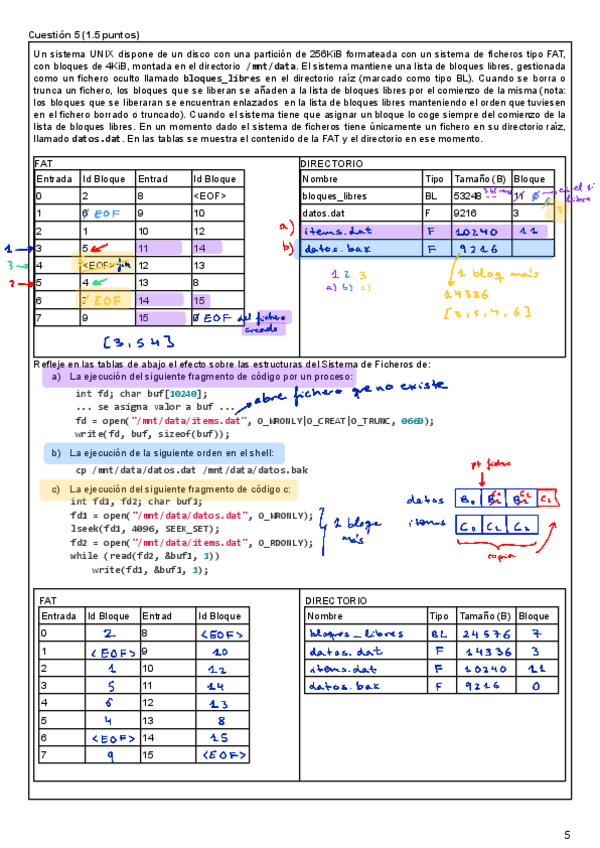 Cuestión 5 (1.5 puntos)
Un sistema UNIX dispone de un disco con una partición de 256KiB formateada con un sistema de ficheros tipo FAT,
con bloques de 4KiB, montada en el directorio /mnt/data. El sistema mantiene una lista de bloques libres, gestionada
como un fichero oculto llamado bloques_libres en el directorio raíz (marcado como tipo BL). Cuando se borra o
trunca un fichero, los bloques que se liberan se añaden a la lista de bloques libres por el comienzo de la misma (nota:
los bloques que se liberaran se encuentran enlazados en la lista de bloques libres manteniendo el orden que tuviesen
en el fichero borrado o truncado). Cuando el sistema tiene que asignar un bloque lo coge siempre del comienzo de la
lista de bloques libres. En un momento dado el sistema de ficheros tiene únicamente un fichero en su directorio raíz,
llamado datos.dat. En las tablas se muestra el contenido de la FAT y el directorio en ese momento.
FAT DIRECTORIO
Entrada Id Bloque Entrad Id Bloque Nombre Tipo Tamaño (B) Bloque
0 2 8 <EOF> bloques_libres BL 53248 11 0
1 EOF 9 10 datos.dat F 9216 3
2 1 10 12 a) items.dat F 10240 11
1 3 5 11 14 b) datos.bak F 9216
3 4 <EOF> 12 13 1 2 3 1 bloq más
2 5 4 13 8 a) b) c) 14336
6 7 EOF 14 15 [3,5,4,6]
7 9 15 0 EOF del fichero creado
[3,5 4]
Refleje en las tablas de abajo el efecto sobre las estructuras del Sistema de Ficheros de:
a) La ejecución del siguiente fragmento de código por un proceso:
int fd; char buf[10240];
... se asigna valor a buf ... abre fichero que no existe
fd = open("/mnt/data/items.dat", O_WRONLY|O_CREAT|O_TRUNC, 0660);
write(fd, buf, sizeof(buf));
b) La ejecución de la siguiente orden en el shell:
cp /mnt/data/datos.dat /mnt/data/datos.bak
pt fichero
c) La ejecución del siguiente fragmento de código c:
int fd1, fd2; char buf1;
datos B0 B1 B2 C2
fd1 = open("/mnt/data/datos.dat", O_WRONLY);
lseek(fd1, 4096, SEEK_SET); 1 bloque más
items C0 C1 C2
fd2 = open("/mnt/data/items.dat", O_RDONLY);
while (read(fd2, &buf1, 1))
copia
write(fd1, &buf1, 1);
FAT DIRECTORIO
Entrada Id Bloque Entrad Id Bloque Nombre Tipo Tamaño (B) Bloque
0 2 8 <EOF> bloques_libres BL 24576 7
1 <EOF> 9 10 datos.dat F 14336 3
2 1 10 12 items.dat F 10240 11
3 5 11 14 datos.bak F 9216 0
4 6 12 13
5 4 13 8
6 <EOF> 14 15
7 9 15 <EOF>
5